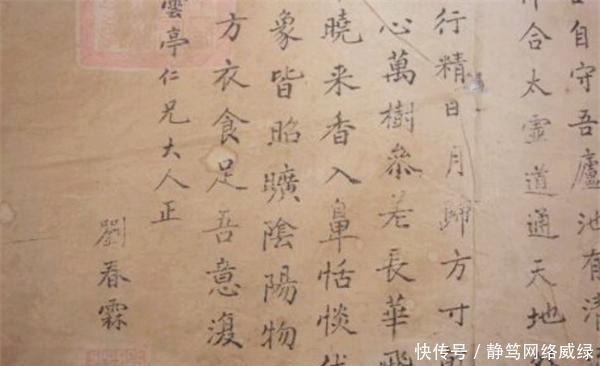 自守吾廬池有清
合太霊道通天地
行精日月歸方寸
心萬樹叅差長華飛
曉来香入鼻恬惔
象皆昭曠陰陽物
方衣食足吾意復
雲亭仁兄大人正
劉春霖
快传号 / 静笃网络威绿